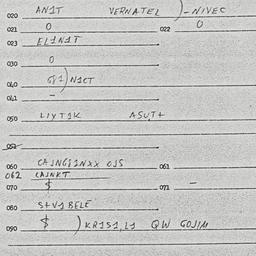 020 AN1T VERNATEL )-NIVEC
021 0 022 0
023 EL1N1T
030 0
040 G81)N1CT
041 -
050 LIYT1K ASUT+
051
060 CAJNG81NXX OJS 061
062 CAJNKT
070 $ 071 -
080 S+V1BELE
090 $ )KR1S1,L1 QW GOJIM